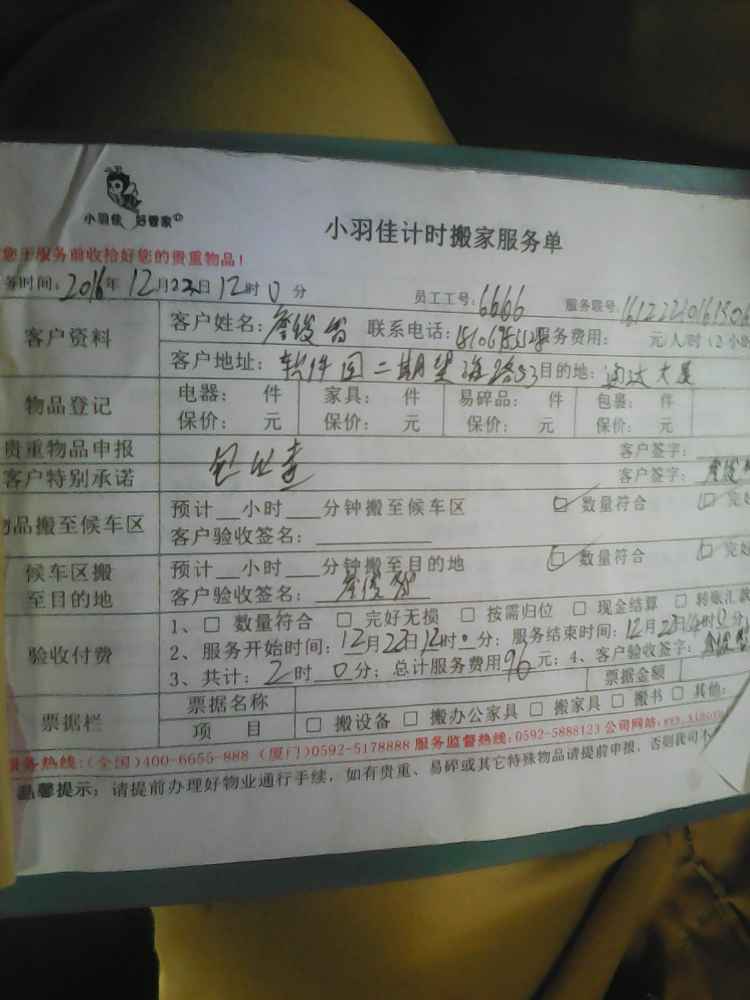 小羽佳 好管家
小羽佳计时搬家服务单
您于服务前收拾好您的贵重物品!
务时间: 2016年12月22日12时0分 员工工号: 6666 服务联号:
客户资料 客户姓名: 联系电话: 服务费用: 元人时(2小时
客户地址: 软件园二期望海路 目的地: 大厦
物品登记 电器: 件 家具: 件 易碎品: 件 包裹: 件
保价: 元 保价: 元 保价: 元 保价: 元
贵重物品申报 客户签字:
客户特别承诺 客户签字:
物品搬至候车区 预计__小时___分钟搬至候车区 □ 数量符合 □ 完好
客户验收签名:
候车区搬至目的地 预计__小时___分钟搬至目的地 □ 数量符合 □ 完好
客户验收签名:
验收付费 1、□ 数量符合 □ 完好无损 □ 按需归位 □ 现金结算 □ 转账汇款
2、服务开始时间: 12月22日12时0分; 服务结束时间: 12月22日14时0分
3、共计: 2时0分; 总计服务费用96元; 4、客户验收签字:
票据栏 票据名称 票据金额
项 目 □ 搬设备 □ 搬办公家具 □ 搬家具 □ 搬书 □ 其他:
服务热线:(全国)400-6655-888 (厦门)0592-5178888 服务监督热线:0592-5888123 公司网站:
温馨提示: 请提前办理好物业通行手续, 如有贵重、易碎或其它特殊物品请提前申报, 否则我司不